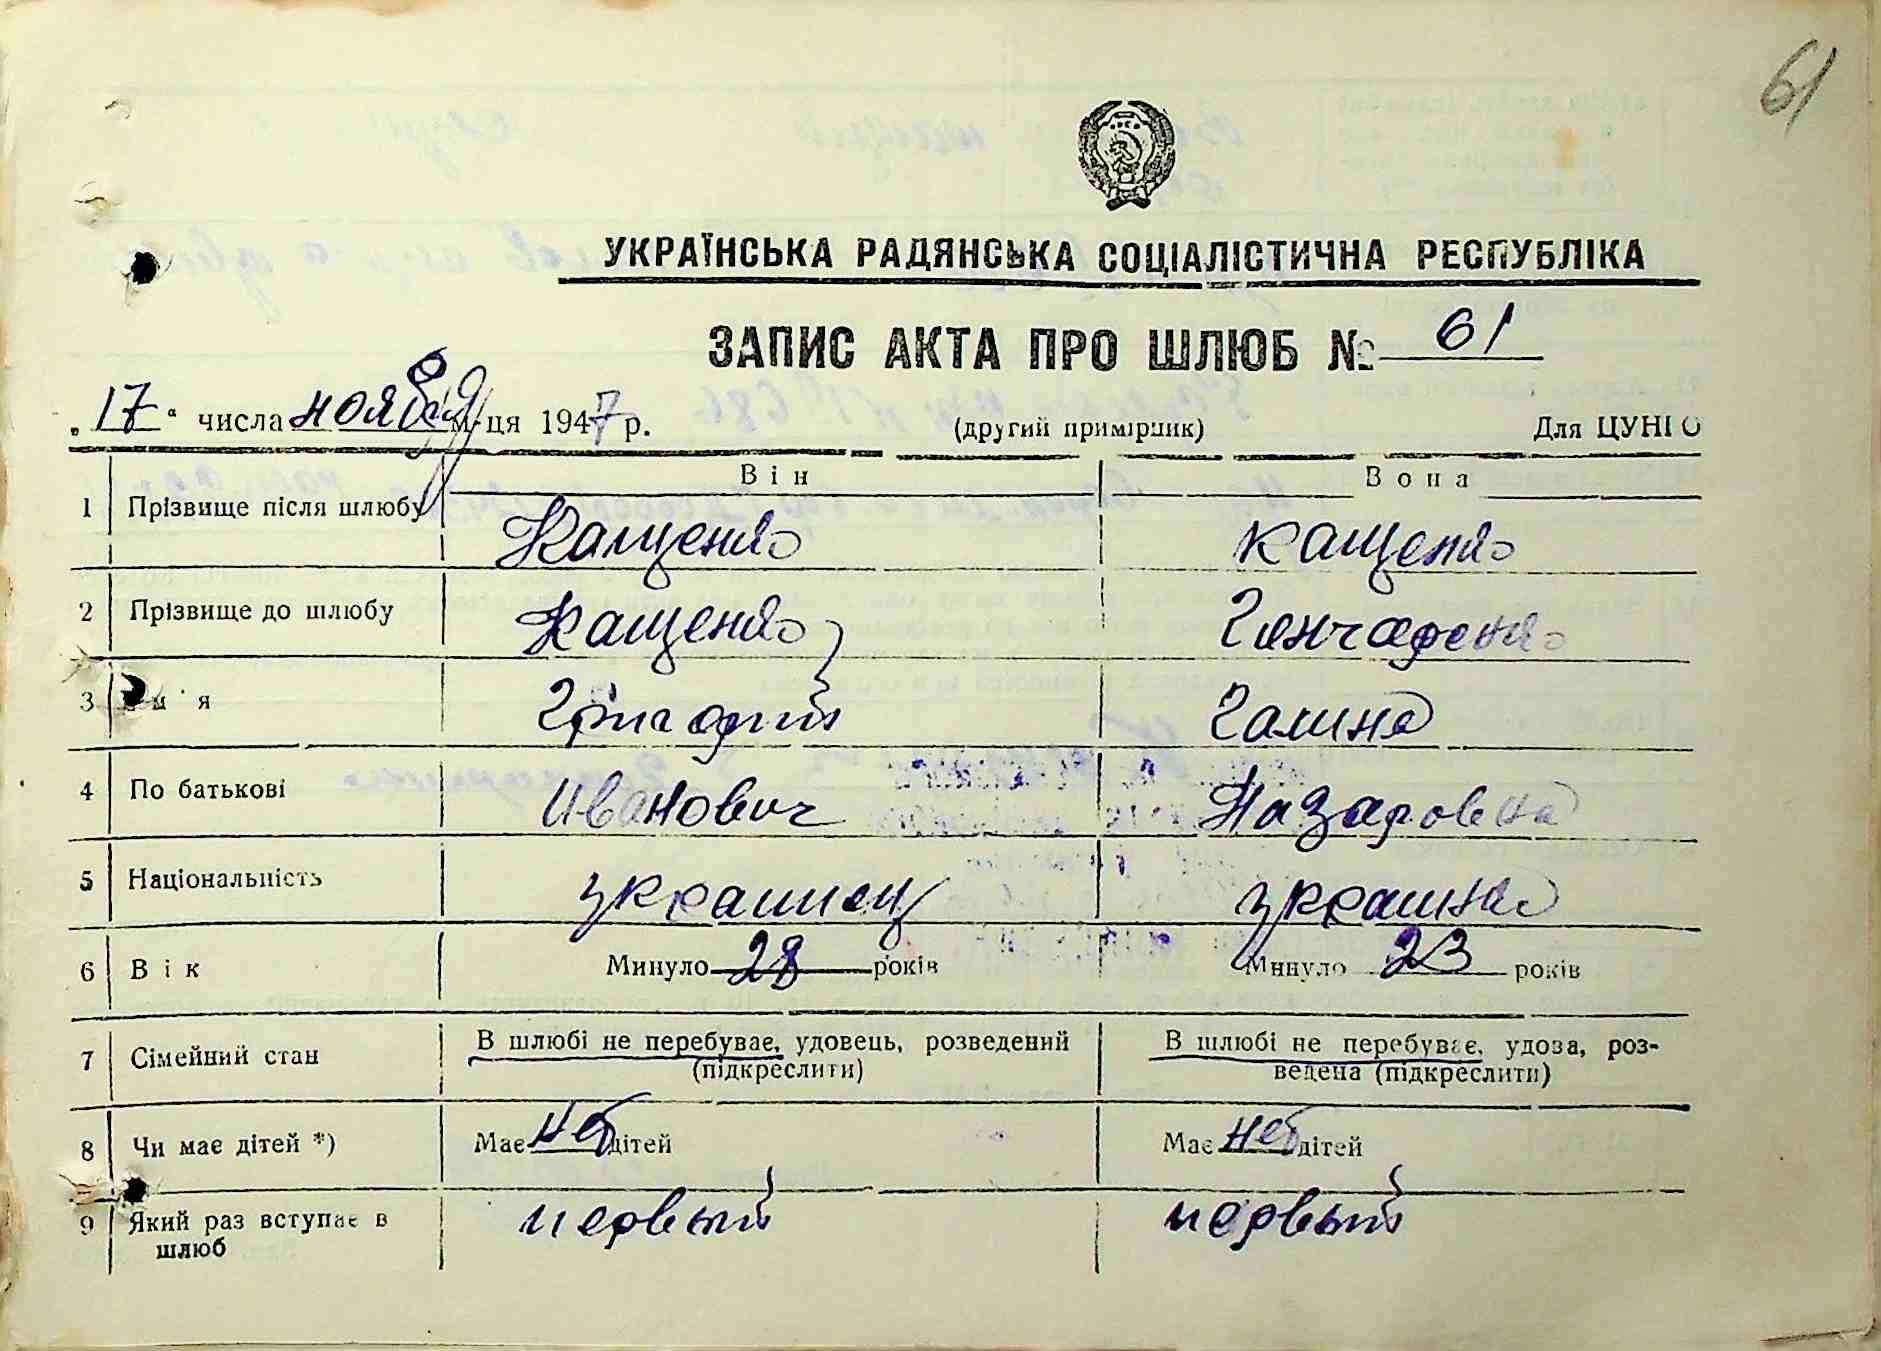 61
УКРАЇНСЬКА РАДЯНСЬКА СОЦІАЛІСТИЧНА РЕСПУБЛІКА
ЗАПИС АКТА ПРО ШЛЮБ № 61
„17“ числа ноября м-ця 1947 р. (другий примірник) Для ЦУНГО
Він Вона
1 Прізвище після шлюбу Кащенко Кащенко
2 Прізвище до шлюбу Кащенко Гончаренко
3 Ім'я Григорий Галина
4 По батькові Иванович Назаровна
5 Національність украинец украинка
6 Вік Минуло 28 років Минуло 23 років
7 Сімейний стан В шлюбі не перебуває, удовець, розведений (підкреслити) В шлюбі не перебуває, удова, роз-
ведена (підкреслити)
8 Чи має дітей *) Має нет дітей Має нет дітей
9 Який раз вступає в шлюб первый первый